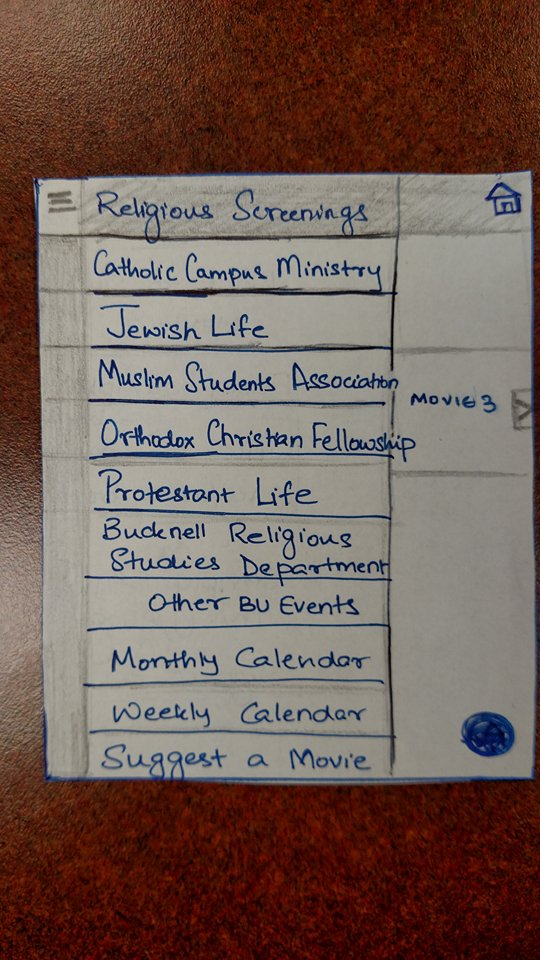 Religious Screenings
Catholic Campus Ministry
Jewish Life
Muslim Students Association
MOVIE 3
Orthodox Christian Fellowship
Protestant Life
Bucknell Religious
Studies Department
Other BU Events
Monthly Calendar
Weekly Calendar
Suggest a Movie